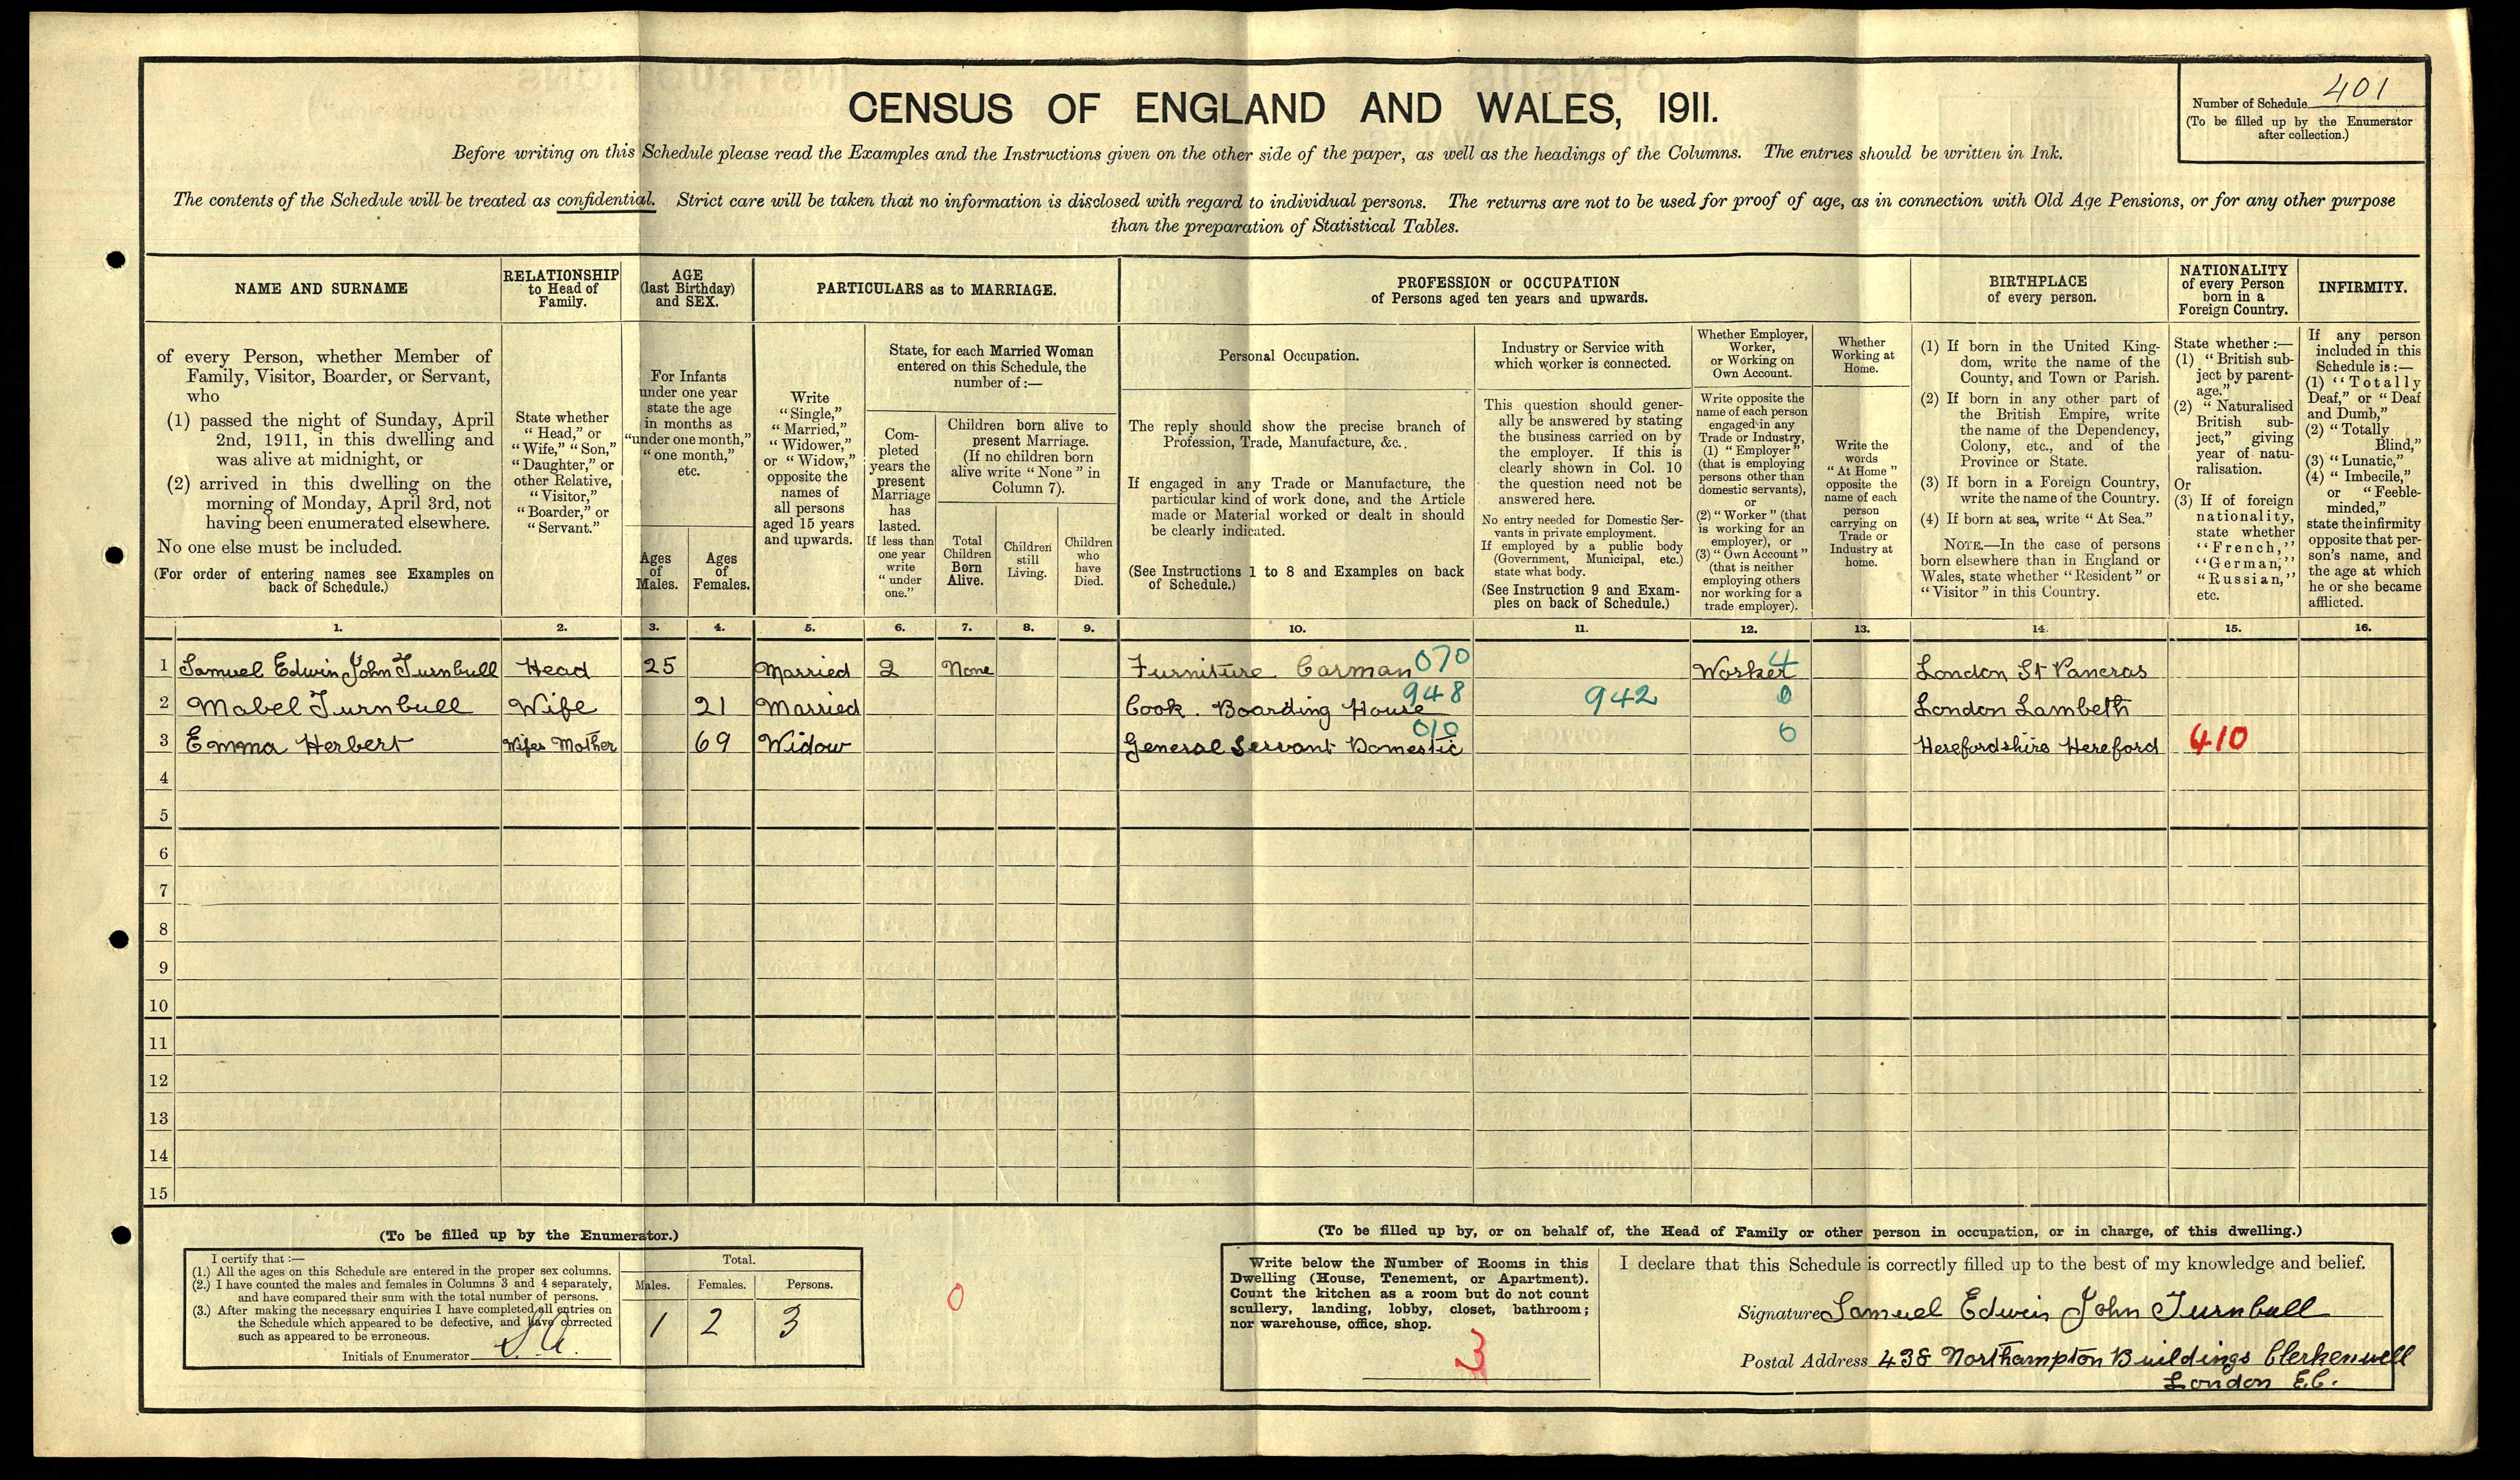 CENSUS OF ENGLAND AND WALES, 1911.
Number of Schedule 401
(To be filled up by the Enumerator
after collection.)
Before writing on this Schedule please read the Examples and the Instructions given on the other side of the paper, as well as the headings of the Columns. The entries should be written in Ink.
The contents of the Schedule will be treated as confidential. Strict care will be taken that no information is disclosed with regard to individual persons. The returns are not to be used for proof of age, as in connection with Old Age Pensions, or for any other purpose
than the preparation of Statistical Tables.
NAME AND SURNAME
of every Person, whether Member of
Family, Visitor, Boarder, or Servant,
who
(1) passed the night of Sunday, April
2nd, 1911, in this dwelling and
was alive at midnight, or
(2) arrived in this dwelling on the
morning of Monday, April 3rd, not
having been enumerated elsewhere.
No one else must be included.
(For order of entering names see Examples on
back of Schedule.)
RELATIONSHIP
to Head of
Family.
State whether
"Head," or
"Wife," "Son,"
"Daughter," or
other Relative,
"Visitor,"
"Boarder," or
"Servant."
AGE
(last Birthday)
and SEX.
For Infants
under one year
state the age
in months as
"under one month,"
"one month,"
etc.
Ages
of
Males.
Ages
of
Females.
PARTICULARS as to MARRIAGE.
Write
"Single,"
"Married,"
"Widower,"
or "Widow,"
opposite the
names of
all persons
aged 15 years
and upwards.
State, for each Married Woman
entered on this Schedule, the
number of:—
Com-
pleted
years the
present
Marriage
has
lasted.
If less than
one year
write
"under
one."
Children born alive to
present Marriage.
(If no children born
alive write "None" in
Column 7).
Total
Children
Born
Alive.
Children
still
Living.
Children
who
have
Died.
PROFESSION or OCCUPATION
of Persons aged ten years and upwards.
Personal Occupation.
The reply should show the precise branch of
Profession, Trade, Manufacture, &c..
If engaged in any Trade or Manufacture, the
particular kind of work done, and the Article
made or Material worked or dealt in should
be clearly indicated.
(See Instructions 1 to 8 and Examples on back
of Schedule.)
Industry or Service with
which worker is connected.
This question should gener-
ally be answered by stating
the business carried on by
the employer. If this is
clearly shown in Col. 10
the question need not be
answered here.
No entry needed for Domestic Ser-
vants in private employment.
If employed by a public body
(Government, Municipal, etc.)
state what body.
(See Instruction 9 and Exam-
ples on back of Schedule.)
Whether Employer,
Worker,
or Working on
Own Account.
Write opposite the
name of each person
engaged in any
Trade or Industry,
(1) "Employer"
(that is employing
persons other than
domestic servants),
or
(2) "Worker" (that
is working for an
employer), or
(3) "Own Account"
(that is neither
employing others
nor working for a
trade employer).
Whether
Working at
Home.
Write the
words
"At Home"
opposite the
name of each
person
carrying on
Trade or
Industry at
home.
BIRTHPLACE
of every person.
(1) If born in the United King-
dom, write the name of the
County, and Town or Parish.
(2) If born in any other part of
the British Empire, write
the name of the Dependency,
Colony, etc., and of the
Province or State.
(3) If born in a Foreign Country,
write the name of the Country.
(4) If born at sea, write "At Sea."
NOTE.—In the case of persons
born elsewhere than in England or
Wales, state whether "Resident" or
"Visitor" in this Country.
NATIONALITY
of every Person
born in a
Foreign Country.
State whether:—
(1) "British sub-
ject by parent-
age."
(2) "Naturalised
British sub-
ject," giving
year of natu-
ralisation.
Or
(3) If of foreign
nationality,
state whether
"French,"
"German,"
"Russian,"
etc.
INFIRMITY.
If any person
included in this
Schedule is:—
(1) "Totally
Deaf," or "Deaf
and Dumb,"
(2) "Totally
Blind,"
(3) "Lunatic,"
(4) "Imbecile,"
or "Feeble-
minded,"
state the infirmity
opposite that per-
son's name, and
the age at which
he or she became
afflicted.
1. 2. 3. 4. 5. 6. 7. 8. 9. 10. 11. 12. 13. 14. 15. 16.
1 Samuel Edwin John Turnbull Head 25 Married 2 None Furniture Carman 070 Worker 4 London St Pancras
2 Mabel Turnbull Wife 21 Married Cook. Boarding House 948 942 0 London Lambeth
3 Emma Herbert Wifes Mother 69 Widow General Servant Domestic 010 0 Herefordshire Hereford 410
4
5
6
7
8
9
10
11
12
13
14
15
(To be filled up by the Enumerator.)
I certify that:—
(1.) All the ages on this Schedule are entered in the proper sex columns.
(2.) I have counted the males and females in Columns 3 and 4 separately,
and have compared their sum with the total number of persons.
(3.) After making the necessary enquiries I have completed all entries on
the Schedule which appeared to be defective, and have corrected
such as appeared to be erroneous.
Initials of Enumerator
Total.
Males. Females. Persons.
1 2 3
0
(To be filled up by, or on behalf of, the Head of Family or other person in occupation, or in charge, of this dwelling.)
Write below the Number of Rooms in this
Dwelling (House, Tenement, or Apartment).
Count the kitchen as a room but do not count
scullery, landing, lobby, closet, bathroom;
nor warehouse, office, shop.
3
I declare that this Schedule is correctly filled up to the best of my knowledge and belief.
Signature Samuel Edwin John Turnbull
Postal Address 438 Northampton Buildings Clerkenwell
London E.C.